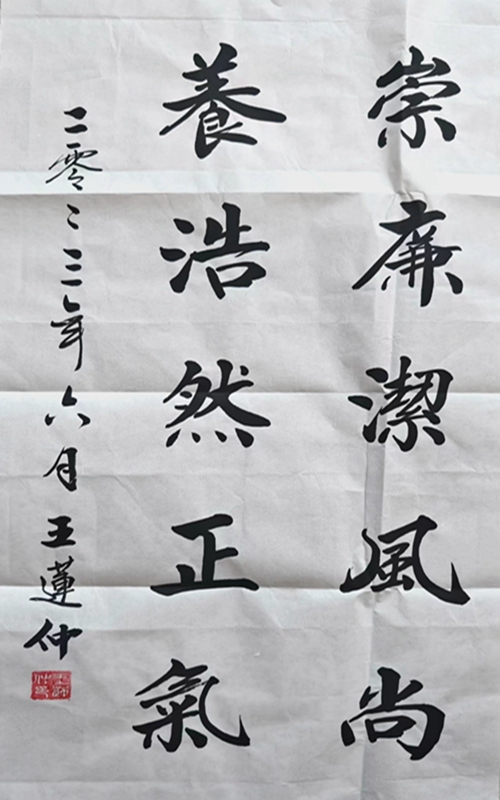 崇廉潔風尚
養浩然正氣
二零二三年六月王蓮仲